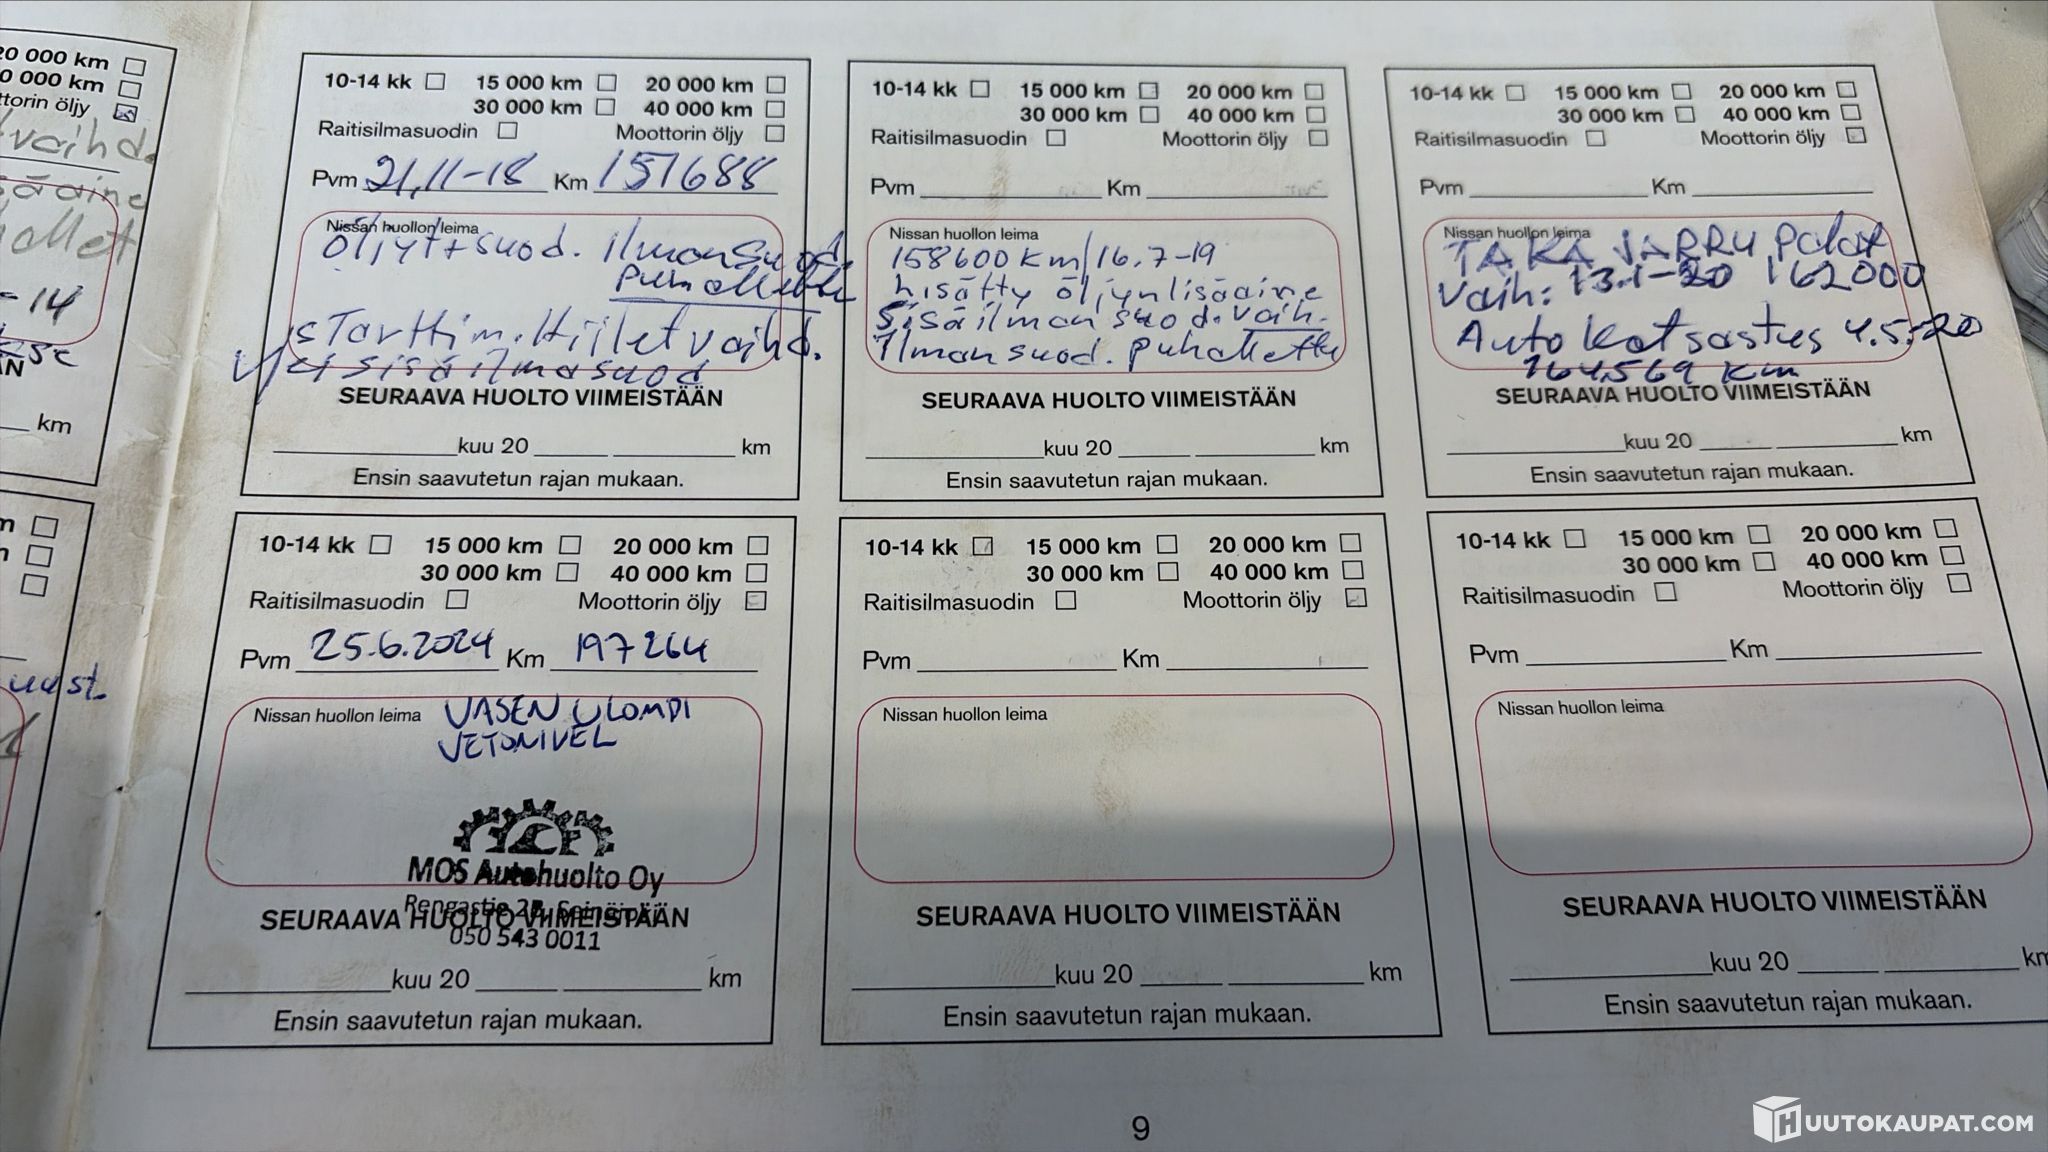 20 000 km
0 000 km
ttorin öljy
vaihd.
sääine
- 14
km
uust.
10-14 kk 15 000 km 20 000 km
30 000 km 40 000 km
Raitisilmasuodin Moottorin öljy
Pvm 21,11-18 Km 151688
Nissan huollon leima
öljyt+suod. ilmansuod.
puhallettu
sTarttim.Hiilet vaihd.
sisäilmasuod
SEURAAVA HUOLTO VIIMEISTÄÄN
kuu 20 km
Ensin saavutetun rajan mukaan.
10-14 kk 15 000 km 20 000 km
30 000 km 40 000 km
Raitisilmasuodin Moottorin öljy
Pvm Km
Nissan huollon leima
158600 km/16.7-19
Lisätty öljynlisäaine
Sisäilman suod. vaih.
ilman suod. puhallettu
SEURAAVA HUOLTO VIIMEISTÄÄN
kuu 20 km
Ensin saavutetun rajan mukaan.
10-14 kk 15 000 km 20 000 km
30 000 km 40 000 km
Raitisilmasuodin Moottorin öljy
Pvm Km
Nissan huollon leima
TAKA JARRU palat
Vaih: 13.1-20 162000
Auto Katsastus 4.5.-20
164569 Km
SEURAAVA HUOLTO VIIMEISTÄÄN
kuu 20 km
Ensin saavutetun rajan mukaan.
10-14 kk 15 000 km 20 000 km
30 000 km 40 000 km
Raitisilmasuodin Moottorin öljy
Pvm 25.6.2024 Km 197264
Nissan huollon leima VASEN ULOMPI
VETONIVEL
MOS Autohuolto Oy
Rengastie 2B, Seinäjoki
SEURAAVA HUOLTO VIIMEISTÄÄN
050 543 0011
kuu 20 km
Ensin saavutetun rajan mukaan.
10-14 kk 15 000 km 20 000 km
30 000 km 40 000 km
Raitisilmasuodin Moottorin öljy
Pvm Km
Nissan huollon leima
SEURAAVA HUOLTO VIIMEISTÄÄN
kuu 20 km
Ensin saavutetun rajan mukaan.
10-14 kk 15 000 km 20 000 km
30 000 km 40 000 km
Raitisilmasuodin Moottorin öljy
Pvm Km
Nissan huollon leima
SEURAAVA HUOLTO VIIMEISTÄÄN
kuu 20 km
Ensin saavutetun rajan mukaan.
9
HUUTOKAUPAT.COM